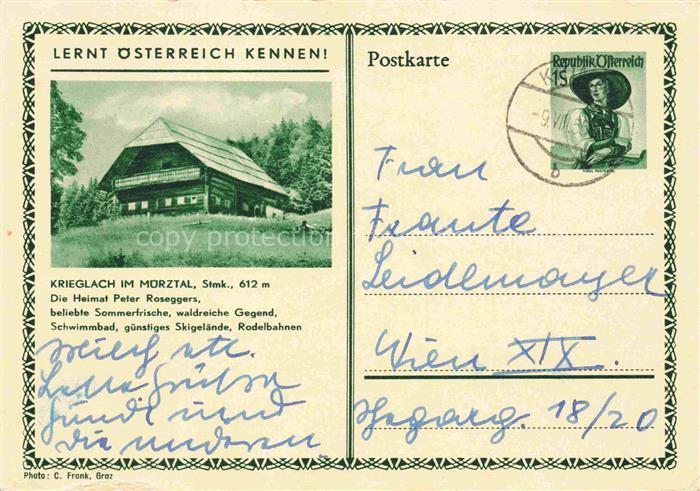 LERNT ÖSTERREICH KENNEN!
copy protection
KRIEGLACH IM MÜRZTAL, Stmk., 612 m
Die Heimat Peter Roseggers,
beliebte Sommerfrische, waldreiche Gegend,
Schwimmbad, günstiges Skigelände, Rodelbahnen
etc.
und
die anderen.
Photo: C. Frank, Graz
Postkarte
Republik Österreich
1S
Frau
Traute
Seidlmayer
Wien XIX.
18/20